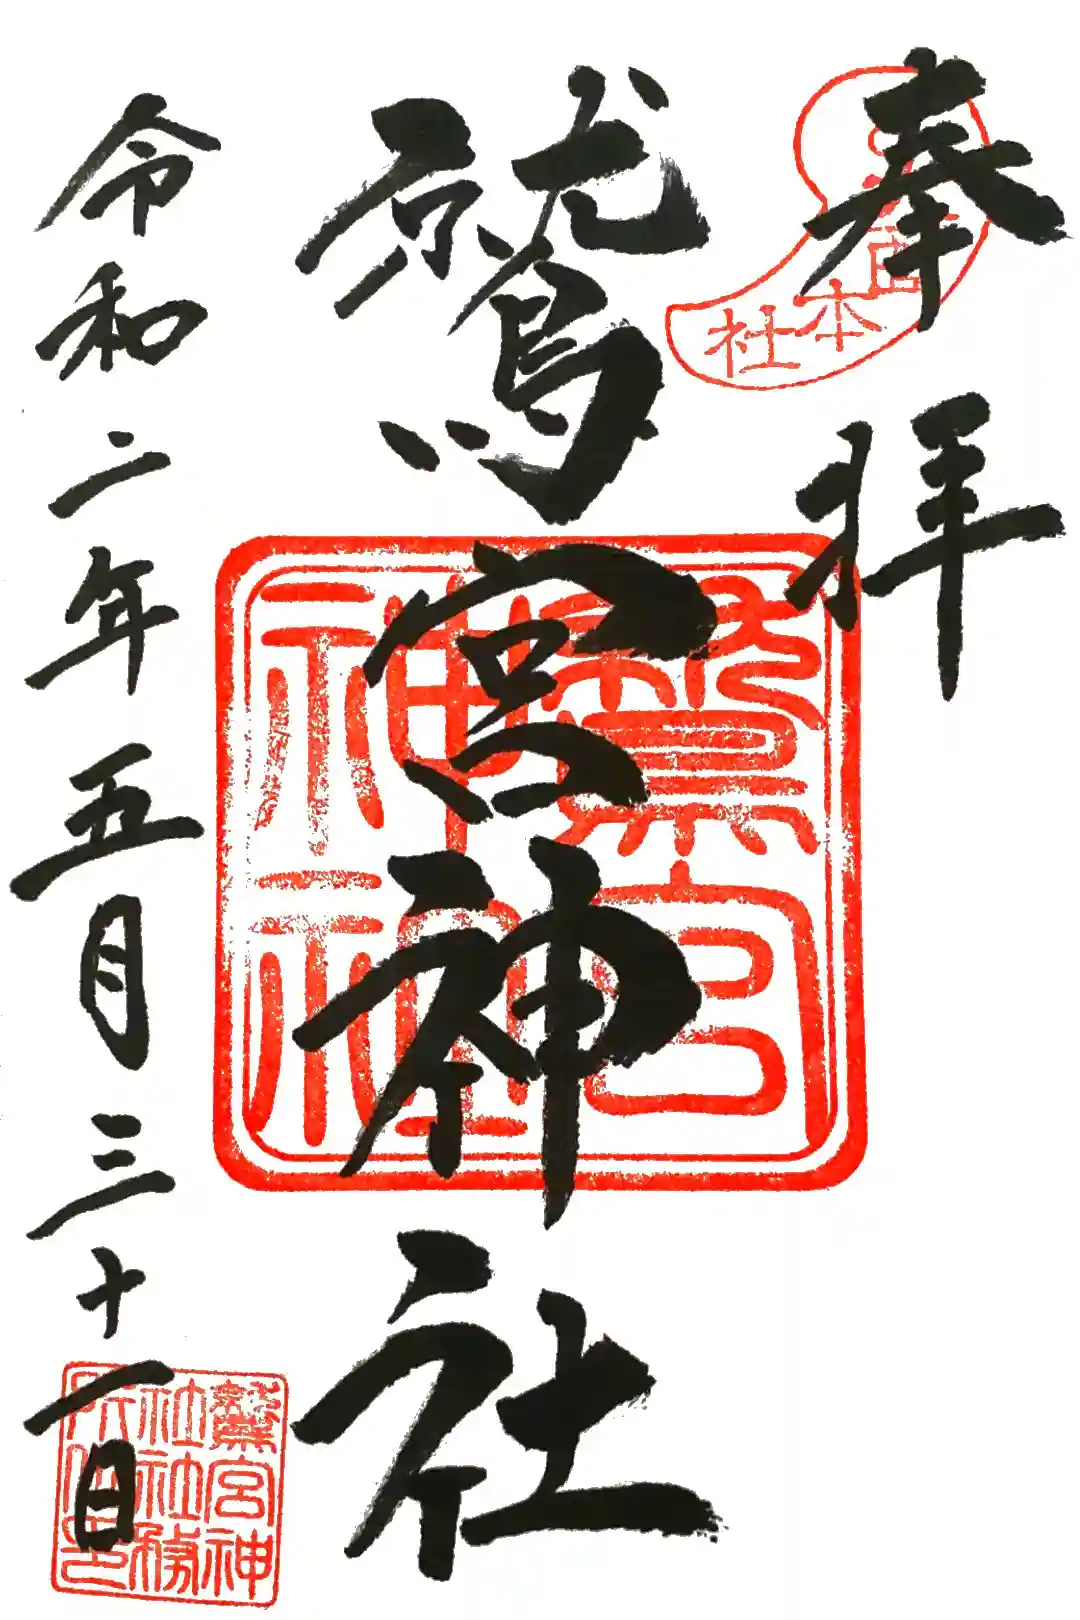 奉拝
鷲宮神社
令和二年五月三十一日
本社
鷲宮神社
鷲宮神
社社務
所之印